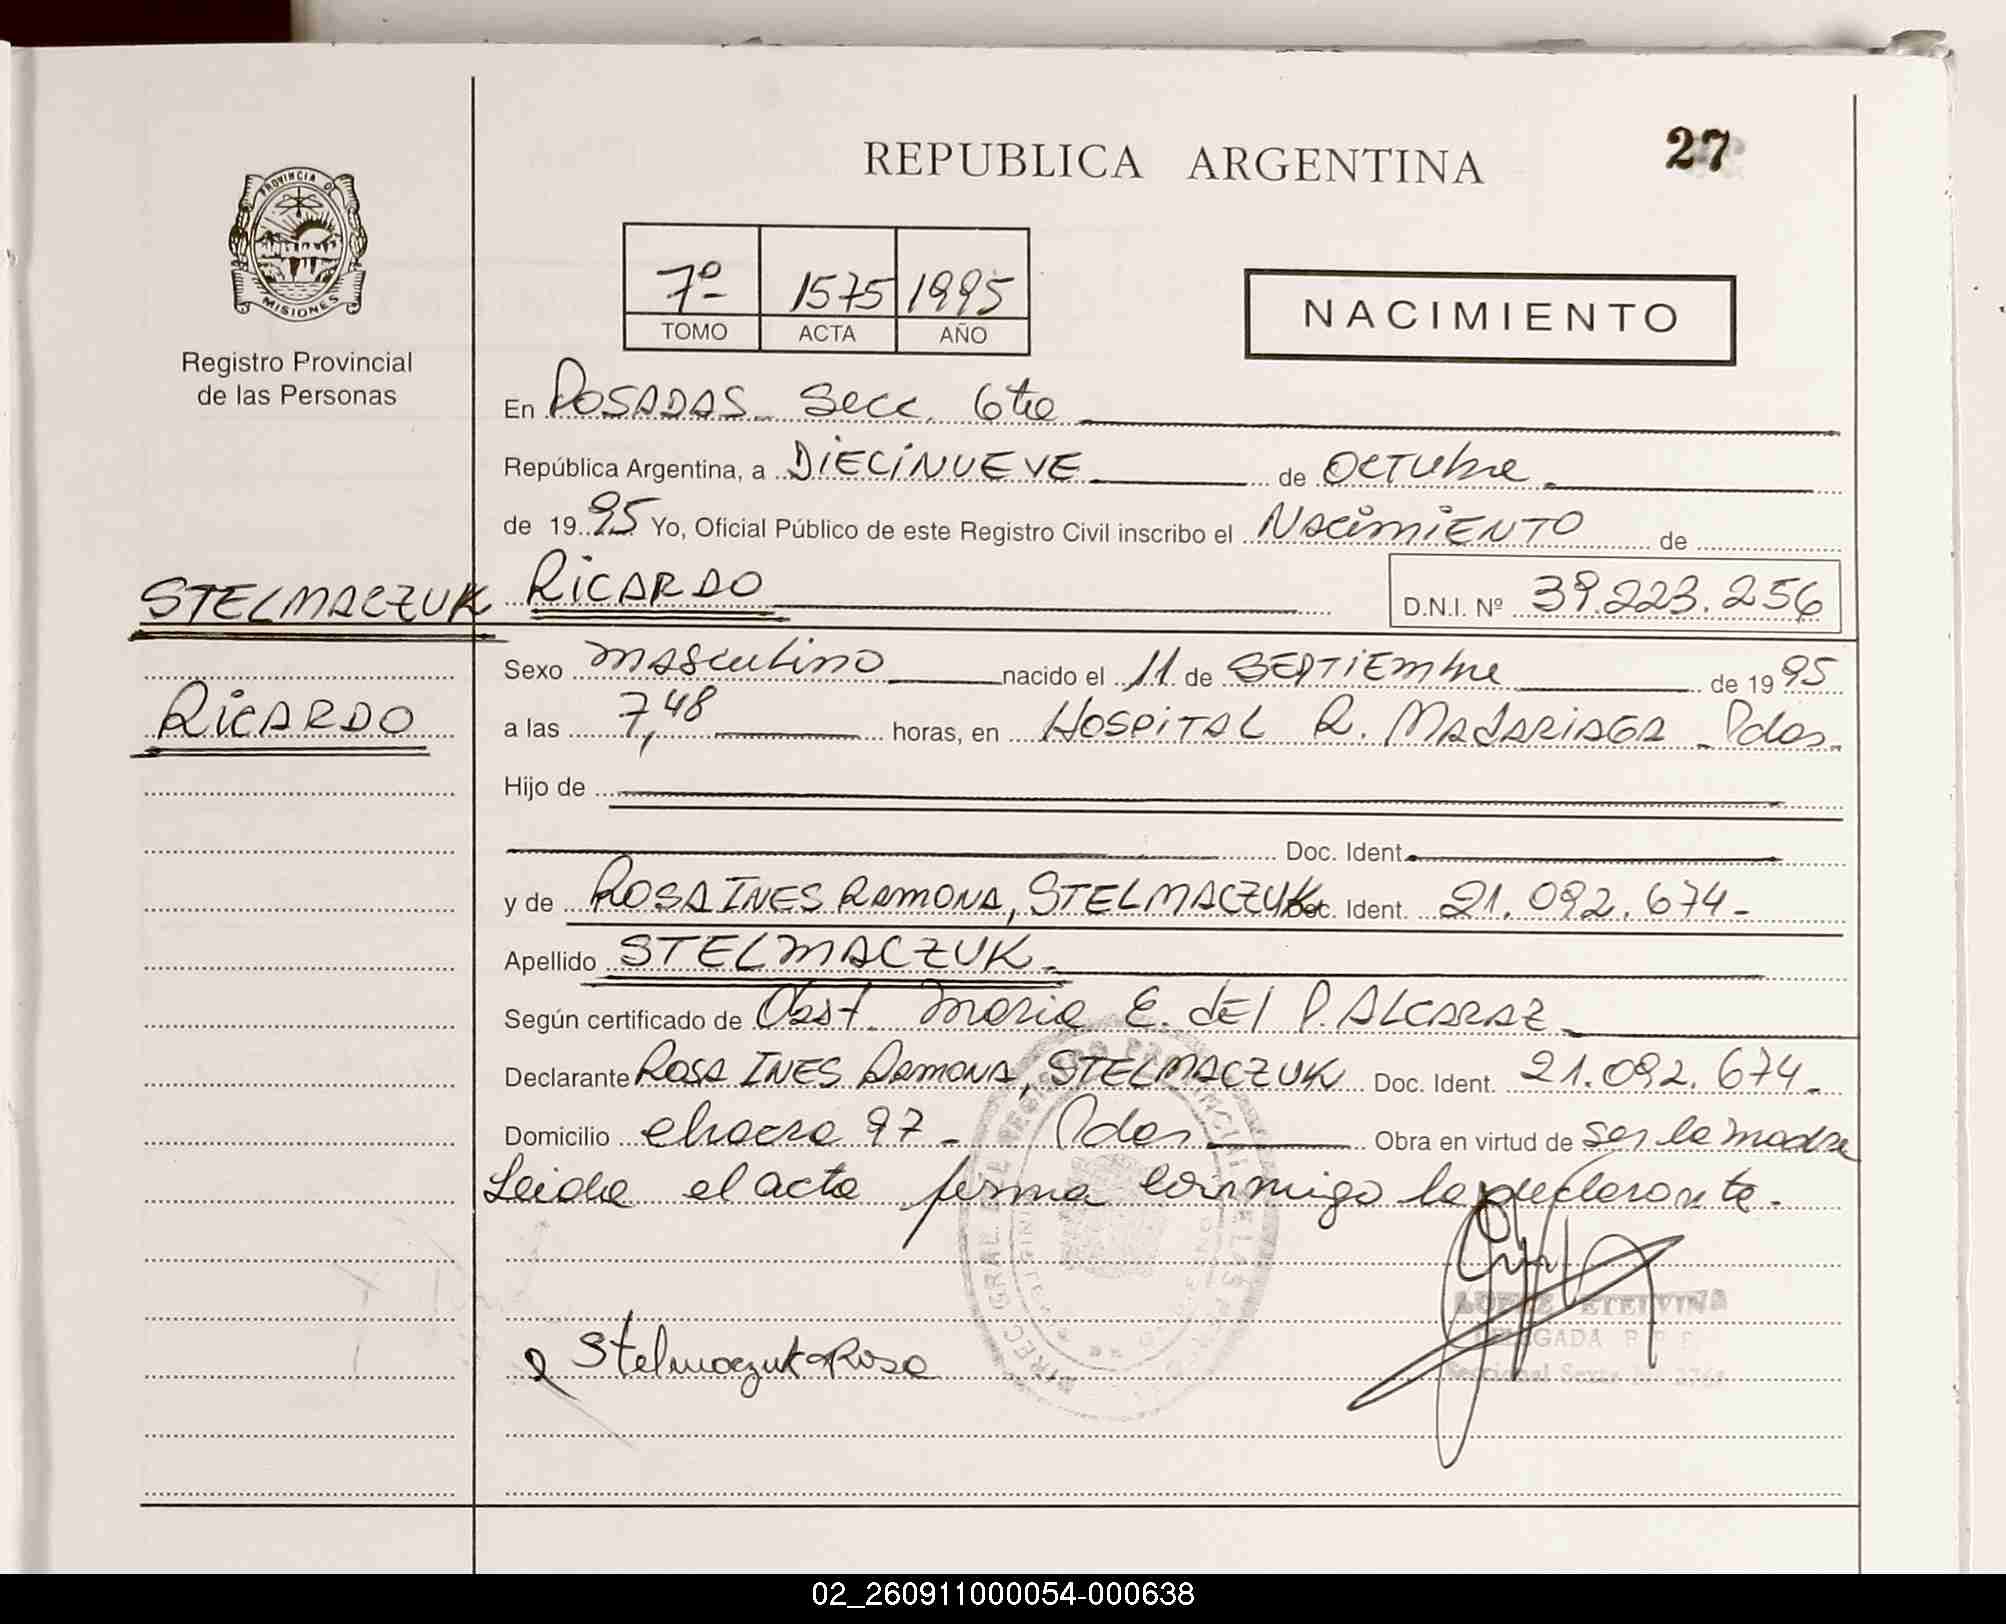 REPUBLICA ARGENTINA
27
PROVINCIA DE
MISIONES
Registro Provincial
de las Personas
7º 1575 1995
TOMO ACTA AÑO
NACIMIENTO
En POSADAS Secc. 6ta
República Argentina, a DIECINUEVE de OCTUbre
de 1995 Yo, Oficial Público de este Registro Civil inscribo el NACIMIENTO de
STELMACZUK RICARDO D.N.I. Nº 39.223.256
Sexo masculino nacido el 11 de SEPTIEmbre de 1995
RICARDO
a las 7,48 horas, en HOSPITAL R. MADARIAGA Pdas.
Hijo de
Doc. Ident.
y de ROSA INES RAMONA, STELMACZUK Doc. Ident. 21.092.674-
Apellido STELMACZUK
Según certificado de Obst. Maria E. del P. ALCARAZ
Declarante ROSA INES RAMONA, STELMACZUK Doc. Ident. 21.092.674-
Domicilio chacra 97- Pdas Obra en virtud de ser la madre
Leida el acta firma conmigo la declarante.
Stelmaczuk Rosa
LOPEZ ETELVINA
DELEGADA R P P
Seccional Sexta
02_260911000054-000638